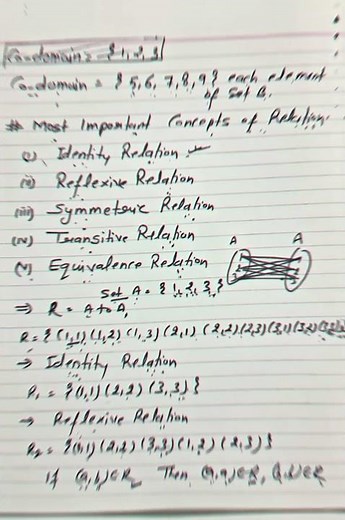 Co-domain = {1,2,3}
Co-domain = {5,6,7,8,9} each element
of set B.
# Most Important Concepts of Relation.
(i) Identity Relation
(ii) Reflexive Relation
(iii) Symmeteric Relation
(iv) Transitive Relation
A A
(v) Equivalence Relation
Set A = {1,2,3}
⇒ R = A to A,
R = {(1,1)(1,2)(1,3)(2,1)(2,2)(2,3)(3,1)(3,2)(3,3)}
→ Identity Relation
R₁ = {(1,1)(2,2)(3,3)}
→ Reflexive Relation
R₂ = {(1,1)(2,2)(3,3)(1,2)(2,3)}
If (a,b)∈R₂ Then (a,a)∈R, (b,b)∈R